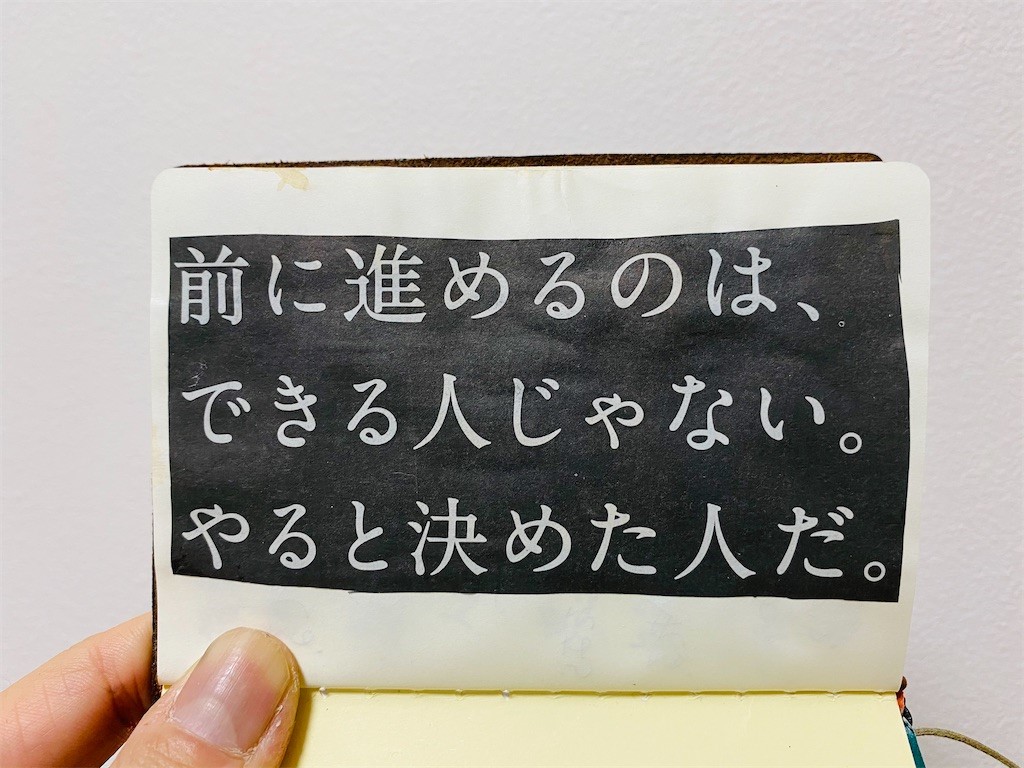 前に進めるのは、
できる人じゃない。
やると決めた人だ。